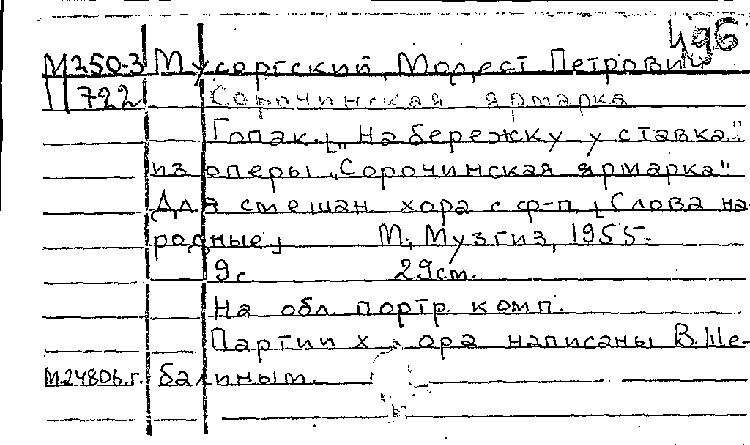 496
М250-3 Мусоргский, Модест Петрович
II 722 Сорочинская ярмарка
Гопак. [„На бережку у ставка."
из оперы „Сорочинская ярмарка"
Для смешан. хора с ф-п. [Слова на-
родные] М., Музгиз, 1955.
9с. 29см.
На обл. портр. комп.
Партии хора написаны В. Ше-
М.24806.г. балиным.